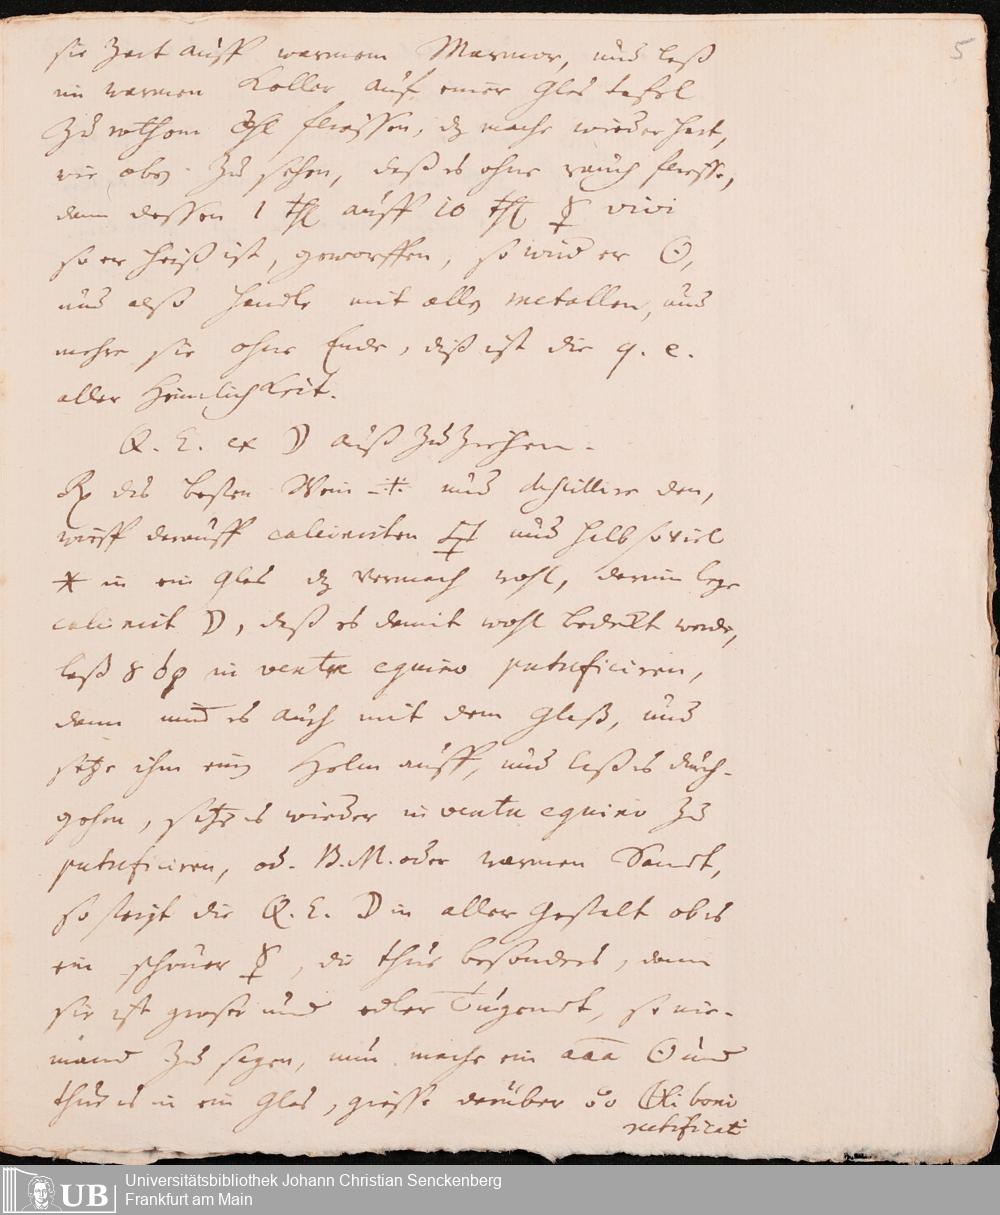 sie Zart auff warmem Marmor, und laß
im warmen Keller auf einer Glas tafel
Zu rothem Öhl fliessen, dz mache wieder hart,
wie oben Zu sehen, daß es ohne rauch fliesse,
dann dessen 1 thl auff 10 thl ☿ vivi
so er heiß ist, geworffen, so wird er ☉,
und also handle mit allen metallen, und
mehre sie ohne Ende, diß ist die q. e.
aller Heimlichkeit.
Q. E. ex ☽ auß Zu Ziehen.
℞ des besten Wein und destillire den,
wirff darauff calcinirten und halb soviel
in ein Glas dz vermach wohl, darein lege
calcinirt ☽, daß es damit wohl bedekt werde,
laß 8 in ventre equino putrificiren,
dann es auch mit dem Glaß, und
setze ihm ein Helm auff, und laß es durch-
gehen, setz es wieder in ventre equino Zu
putrificiren, od. B. M. oder warmen Sandt,
so steigt die Q. E. ☽ in aller Gestalt ob es
ein schöner ☿, die thue besonders, dann
sie ist großer und edler Tugendt, so nie-
mand Zu sagen, nun mache ein aaa ☉ und
thue es in ein Glas, giesse darüber Oli boni
rectificati
5
Universitätsbibliothek Johann Christian Senckenberg
Frankfurt am Main
UB